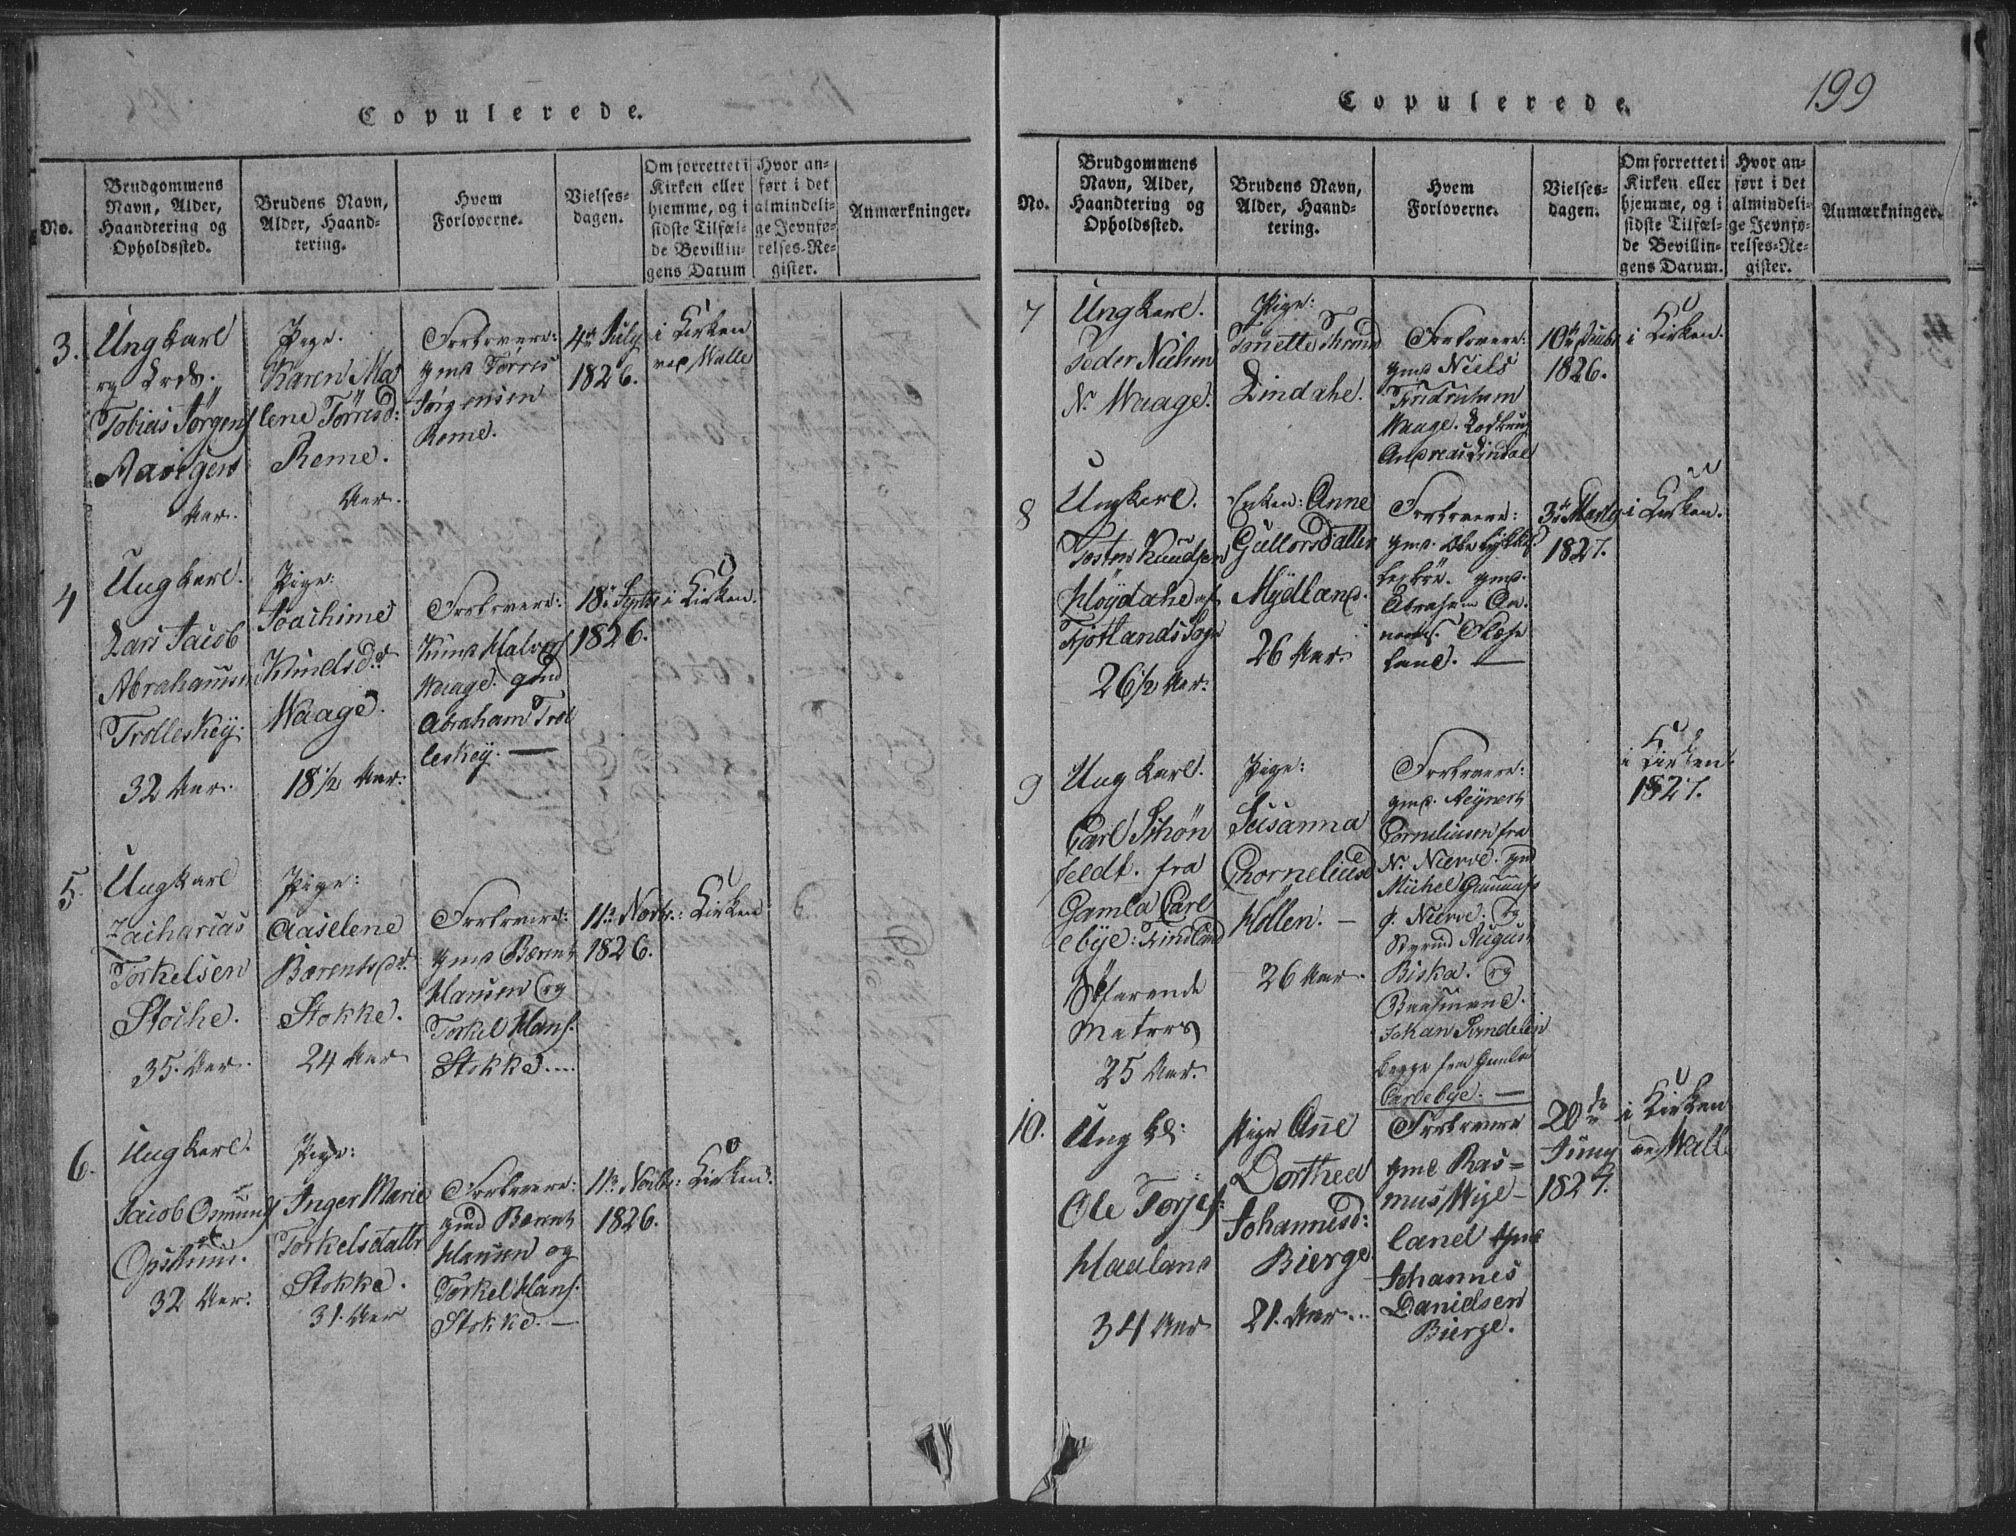 Copulerede.
No.
Brudgommens
Navn, Alder,
Haandtering og
Opholdssted.
Brudens Navn,
Alder, Haand-
tering.
Hvem
Forloverne.
Vielses-
dagen.
Om forrettet i
Kirken eller
hjemme, og i
sidste Tilfæl-
de Bevillin-
gens Datum
Hvor an-
ført i det
almindeli-
ge Jevnfø-
relses-Re-
gister.
Anmærkninger.
3.
Ungkarl
og
Tobias Jørgens
Aavigen
Aar.
Pige.
Karen Ma
lene Tørresd:
Rome.
Aar.
Forlovere:
gmd Tørres
Jørgensen
Rome.
4de July
1826.
i Kirken
ved Walle
4
Ungkarl.
Lars Jacob
Abrahamsen
Trolleskey:
32 Aar.
Pige:
Joachime
Knudsd:
Waage.
18 1/2 Aar.
Forlovere:
Halvors
Waage. gmd
Abraham Trol
leskey. —
18de
1826.
i Kirken.
5.
Ungkarl
Zacharias
Torkelsen
35. Aar.
Pige:
Aaselene
Bærentsd:
Stokke.
24 Aar
Forlovere:
gmd Bærent
Hansen og
Torkel Hans.
Stokke....
11te Novbr:
1826.
Kirken
6.
Ungkarl.
Jacob Osmunds
32 Aar.
Pige:
Inger Marie
Torkelsdatter
Stokke.
31. Aar
Forlovere:
gmd Bærent
Hansen og
Torkel Hans.
Stokke. —
11te Novbr:
1826.
Kirken.
Copulerede.
199
No.
Brudgommens
Navn, Alder,
Haandtering og
Opholdssted.
Brudens Navn,
Alder, Haand-
tering.
Hvem
Forloverne.
Vielses-
dagen.
Om forrettet i
Kirken eller
hjemme, og i
sidste Tilfæl-
de Bevillin-
gens Datum.
Hvor an-
ført i det
almindeli-
ge Jevnfø-
relses-Re-
gister.
Anmærkninger.
7
Ungkarl.
Peder Nielsen
N. Waage.
Pige:
Tonette
Lindahe.
Forlovere:
gmd Niels
Fridrichsen
Waage.
Andreas Lindae
10de
1826.
i Kirken.
8
Ungkarl.
Tosten Knudsen
Høydahe af
Fjotlands Sogn
26 1/2 Aar.
Enken: Anne
Gullorsdatter
Mydland.
26 Aar.
Forlovere:
gmd.
gmd.
Abraham
land. —
3de
1827.
i Kirken.
9
Ungkarl.
Carl Schøn
feldt. fra
Gamla Carl
ebye: Findland
Søfarende
Matros
25 Aar.
Pige:
Susanna
Chorneliusd
Høllen. —
26 Aar.
Forlovere:
gmd. Reynert
Corneliusen fra
N. Nierve. gmd
Michel
Nierve. og
Styrmd August
Biska. og
Baasmand.
Johan Sundelin
begge fra Gamla
Carlebye. —
i Kirken.
1827.
10.
Ungkl:
Ole Torjes:
Haaland
34 Aar
Pige Ane
Dorthea
Johannesd:
Bierge
21. Aar...
Forlovere
gmd Ras=
mus Wige-
land gmd
Johannes
Danielsen
Bierge.
20de
Juny
1827.
i Kirken
ved Walle